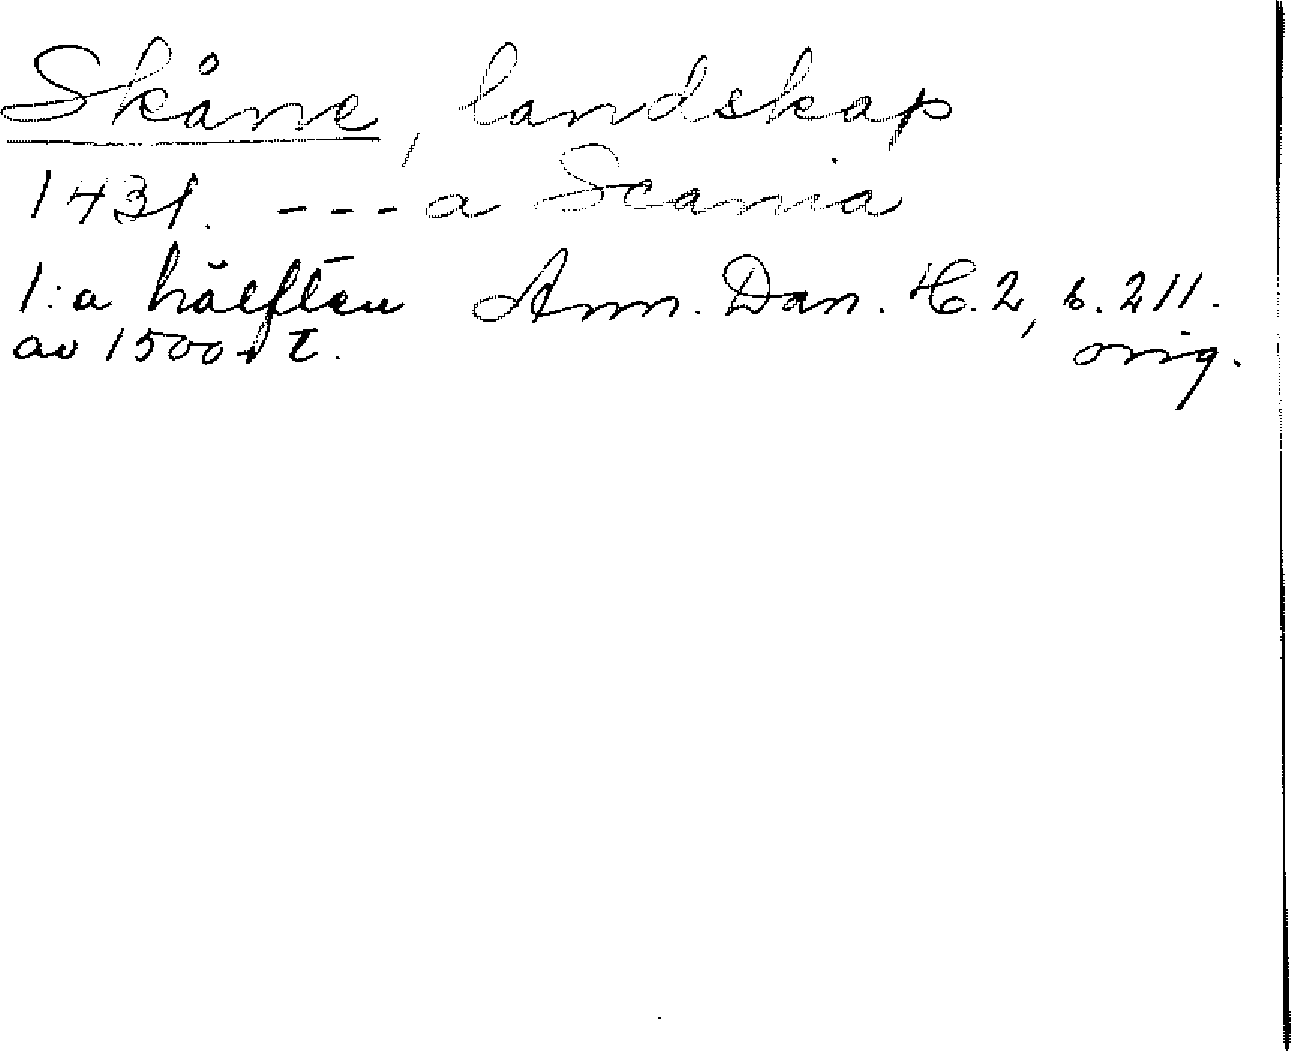 Skåne, landskap
1431. --- a Scania
1:a hälften Ann. Dan. H.2, s. 211.
av 1500-t. orig.